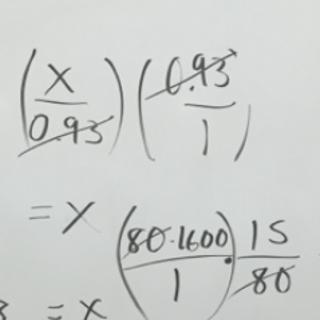 (x/0.93)(0.93/1)
= x (80·1600/1)·15/80
= x